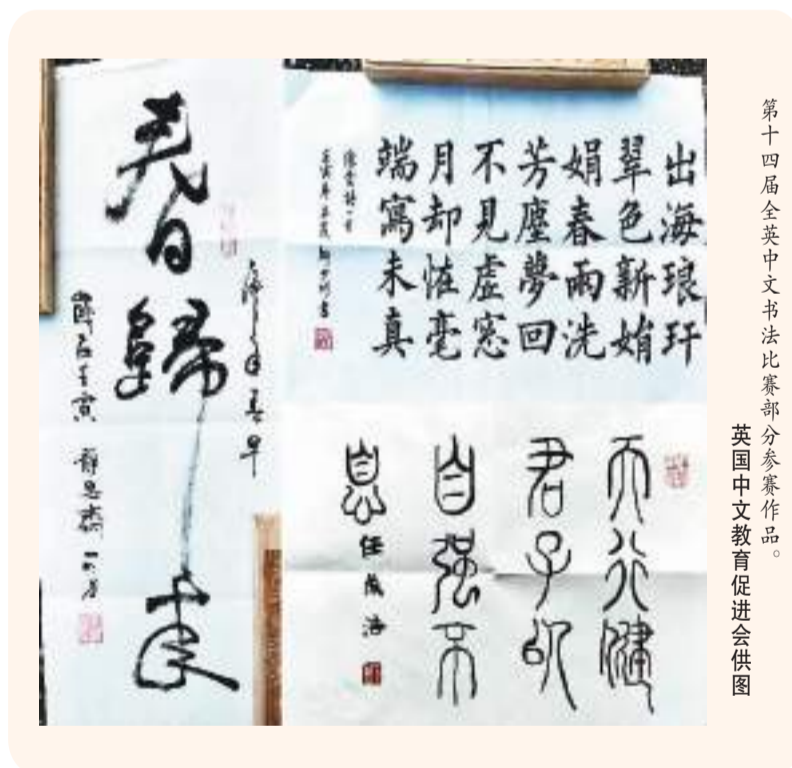 第十四届全英中文书法比赛部分参赛作品。
英国中文教育促进会供图
出海琅玕
翠色新娟
娟春雨洗
芳塵夢回
不見虛窓
月却怪毫
端寫未真
天行健
君子以
自强不
息
春歸來
歲在壬寅